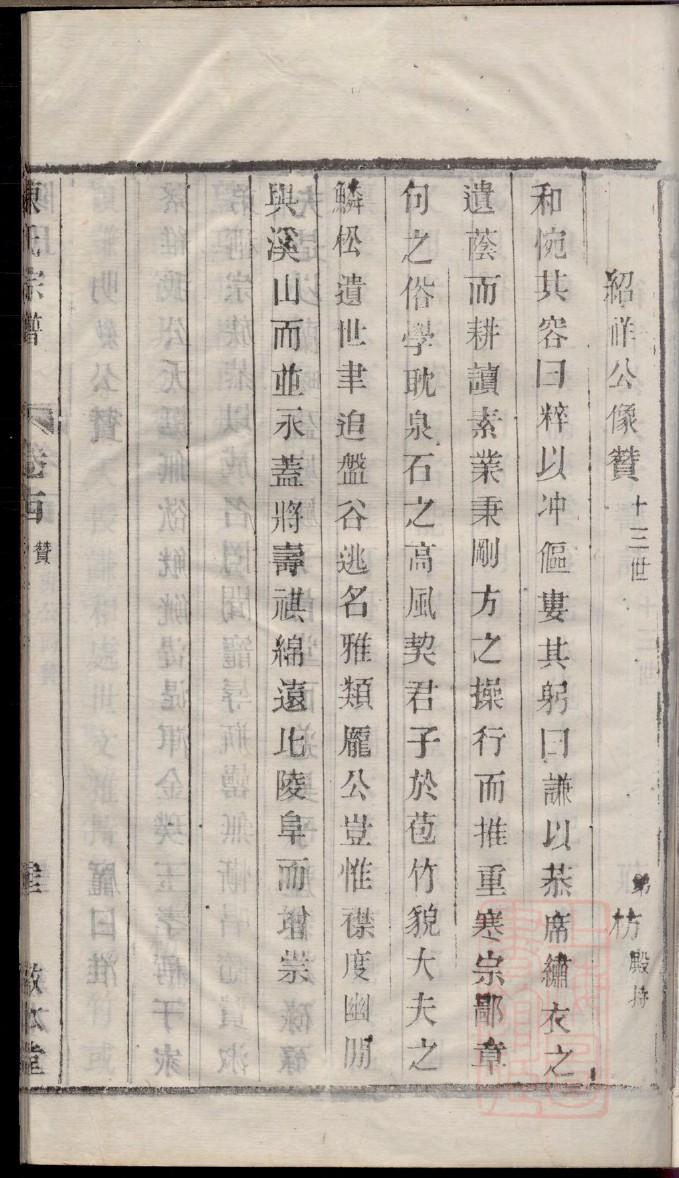 紹祥公像贊 十三世
弟 枋 殿持
和惋其容曰粹以冲傴婁其躬曰謙以恭席繡衣之
遺蔭而耕讀素業秉剛方之操行而推重寒宗鄙章
句之俗學耽泉石之高風契君子於苞竹貌大夫之
鱗松遺世聿追盤谷逃名雅類龎公豈惟襟度幽閒
與溪山而並永蓋將壽祺綿遠比陵阜而增崇
陳氏宗譜 卷 贊 堂